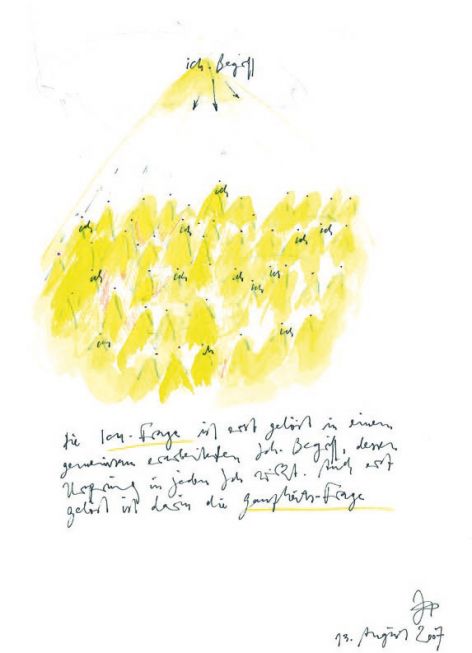 ich-Begriff
ich
ich
ich
ich
ich
ich
ich
ich
ich
ich
ich
ich
ich
ich
die Ich-Frage ist erst gelöst in einem
gemeinsam erarbeiteten Ich-Begriff, dessen
Ursprung in jedem Ich wirkt. Auch erst
gelöst ist darin die Frage
13. August 2007